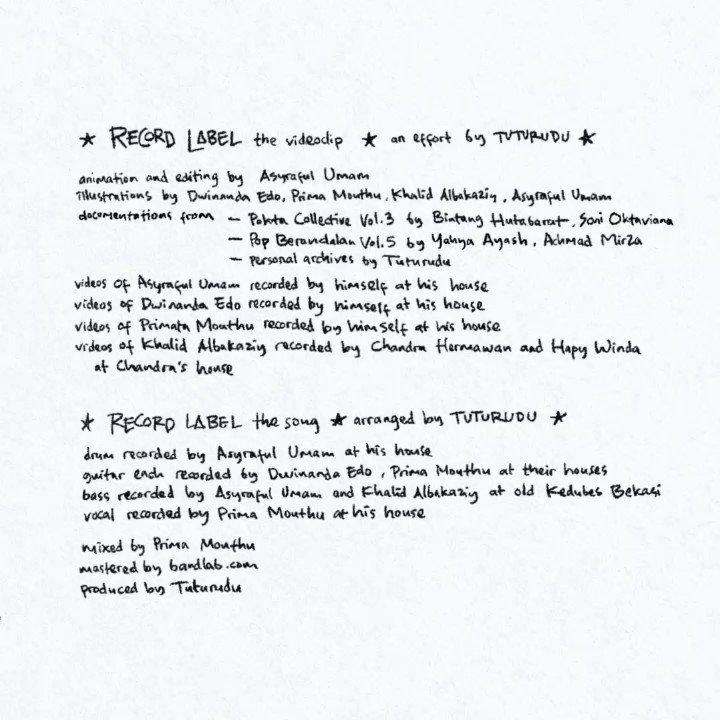 ★ RECORD LABEL the videoclip ★ an effort by TUTURUDU ★
animation and editing by Asyraful Umam
illustrations by Dwinanda Edo, Prima Mouthu, Khalid Albakaziy, Asyraful Umam
documentations from – Pakta Collective Vol.3 by Bintang Hutabarat, Soni Oktaviana
– Pop Berandalan Vol.5 by Yahya Ayash, Achmad Mirza
– personal archives by Tuturudu
videos of Asyraful Umam recorded by himself at his house
videos of Dwinanda Edo recorded by himself at his house
videos of Primata Mouthu recorded by himself at his house
videos of Khalid Albakaziy recorded by Chandra Hermawan and Hapy Winda
at Chandra's house
★ RECORD LABEL the song ★ arranged by TUTURUDU ★
drum recorded by Asyraful Umam at his house
guitar each recorded by Dwinanda Edo, Prima Mouthu at their houses
bass recorded by Asyraful Umam and Khalid Albakaziy at old Kedubes Bekasi
vocal recorded by Prima Mouthu at his house
mixed by Prima Mouthu
mastered by bandlab.com
produced by Tuturudu